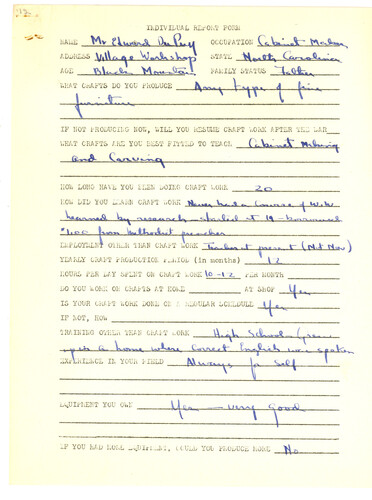 INDIVIDUAL REPORT FORM
NAME Mr Edward DuPuy OCCUPATION Cabinet Maker
ADDRESS Village Workshop STATE North Carolina
AGE Black Mountain FAMILY STATUS Father
WHAT CRAFTS DO YOU PRODUCE Any type of fine
furniture
IF NOT PRODUCING NOW, WILL YOU RESUME CRAFT WORK AFTER THE WAR
WHAT CRAFTS ARE YOU BEST FITTED TO TEACH Cabinet Making
and Carving
HOW LONG HAVE YOU BEEN DOING CRAFT WORK 20
HOW DID YOU LEARN CRAFT WORK Never had a course of
learned by research - started at 19 - borrowed
$1.00 from Methodist preacher
EMPLOYMENT OTHER THAN CRAFT WORK at present (Not Now)
YEARLY CRAFT PRODUCTION PERIOD (in months) 12
HOURS PER DAY SPENT ON CRAFT WORK 10-12 PER MONTH
DO YOU WORK ON CRAFTS AT HOME AT SHOP Yes
IS YOUR CRAFT WORK DONE ON A REGULAR SCHEDULE Yes
IF NOT, HOW
TRAINING OTHER THAN CRAFT WORK High School - Grew
up in a home where correct English was spoken
EXPERIENCE IN YOUR FIELD Always for self
EQUIPMENT YOU OWN Yes - very good
IF YOU HAD MORE EQUIPMENT, COULD YOU PRODUCE MORE No